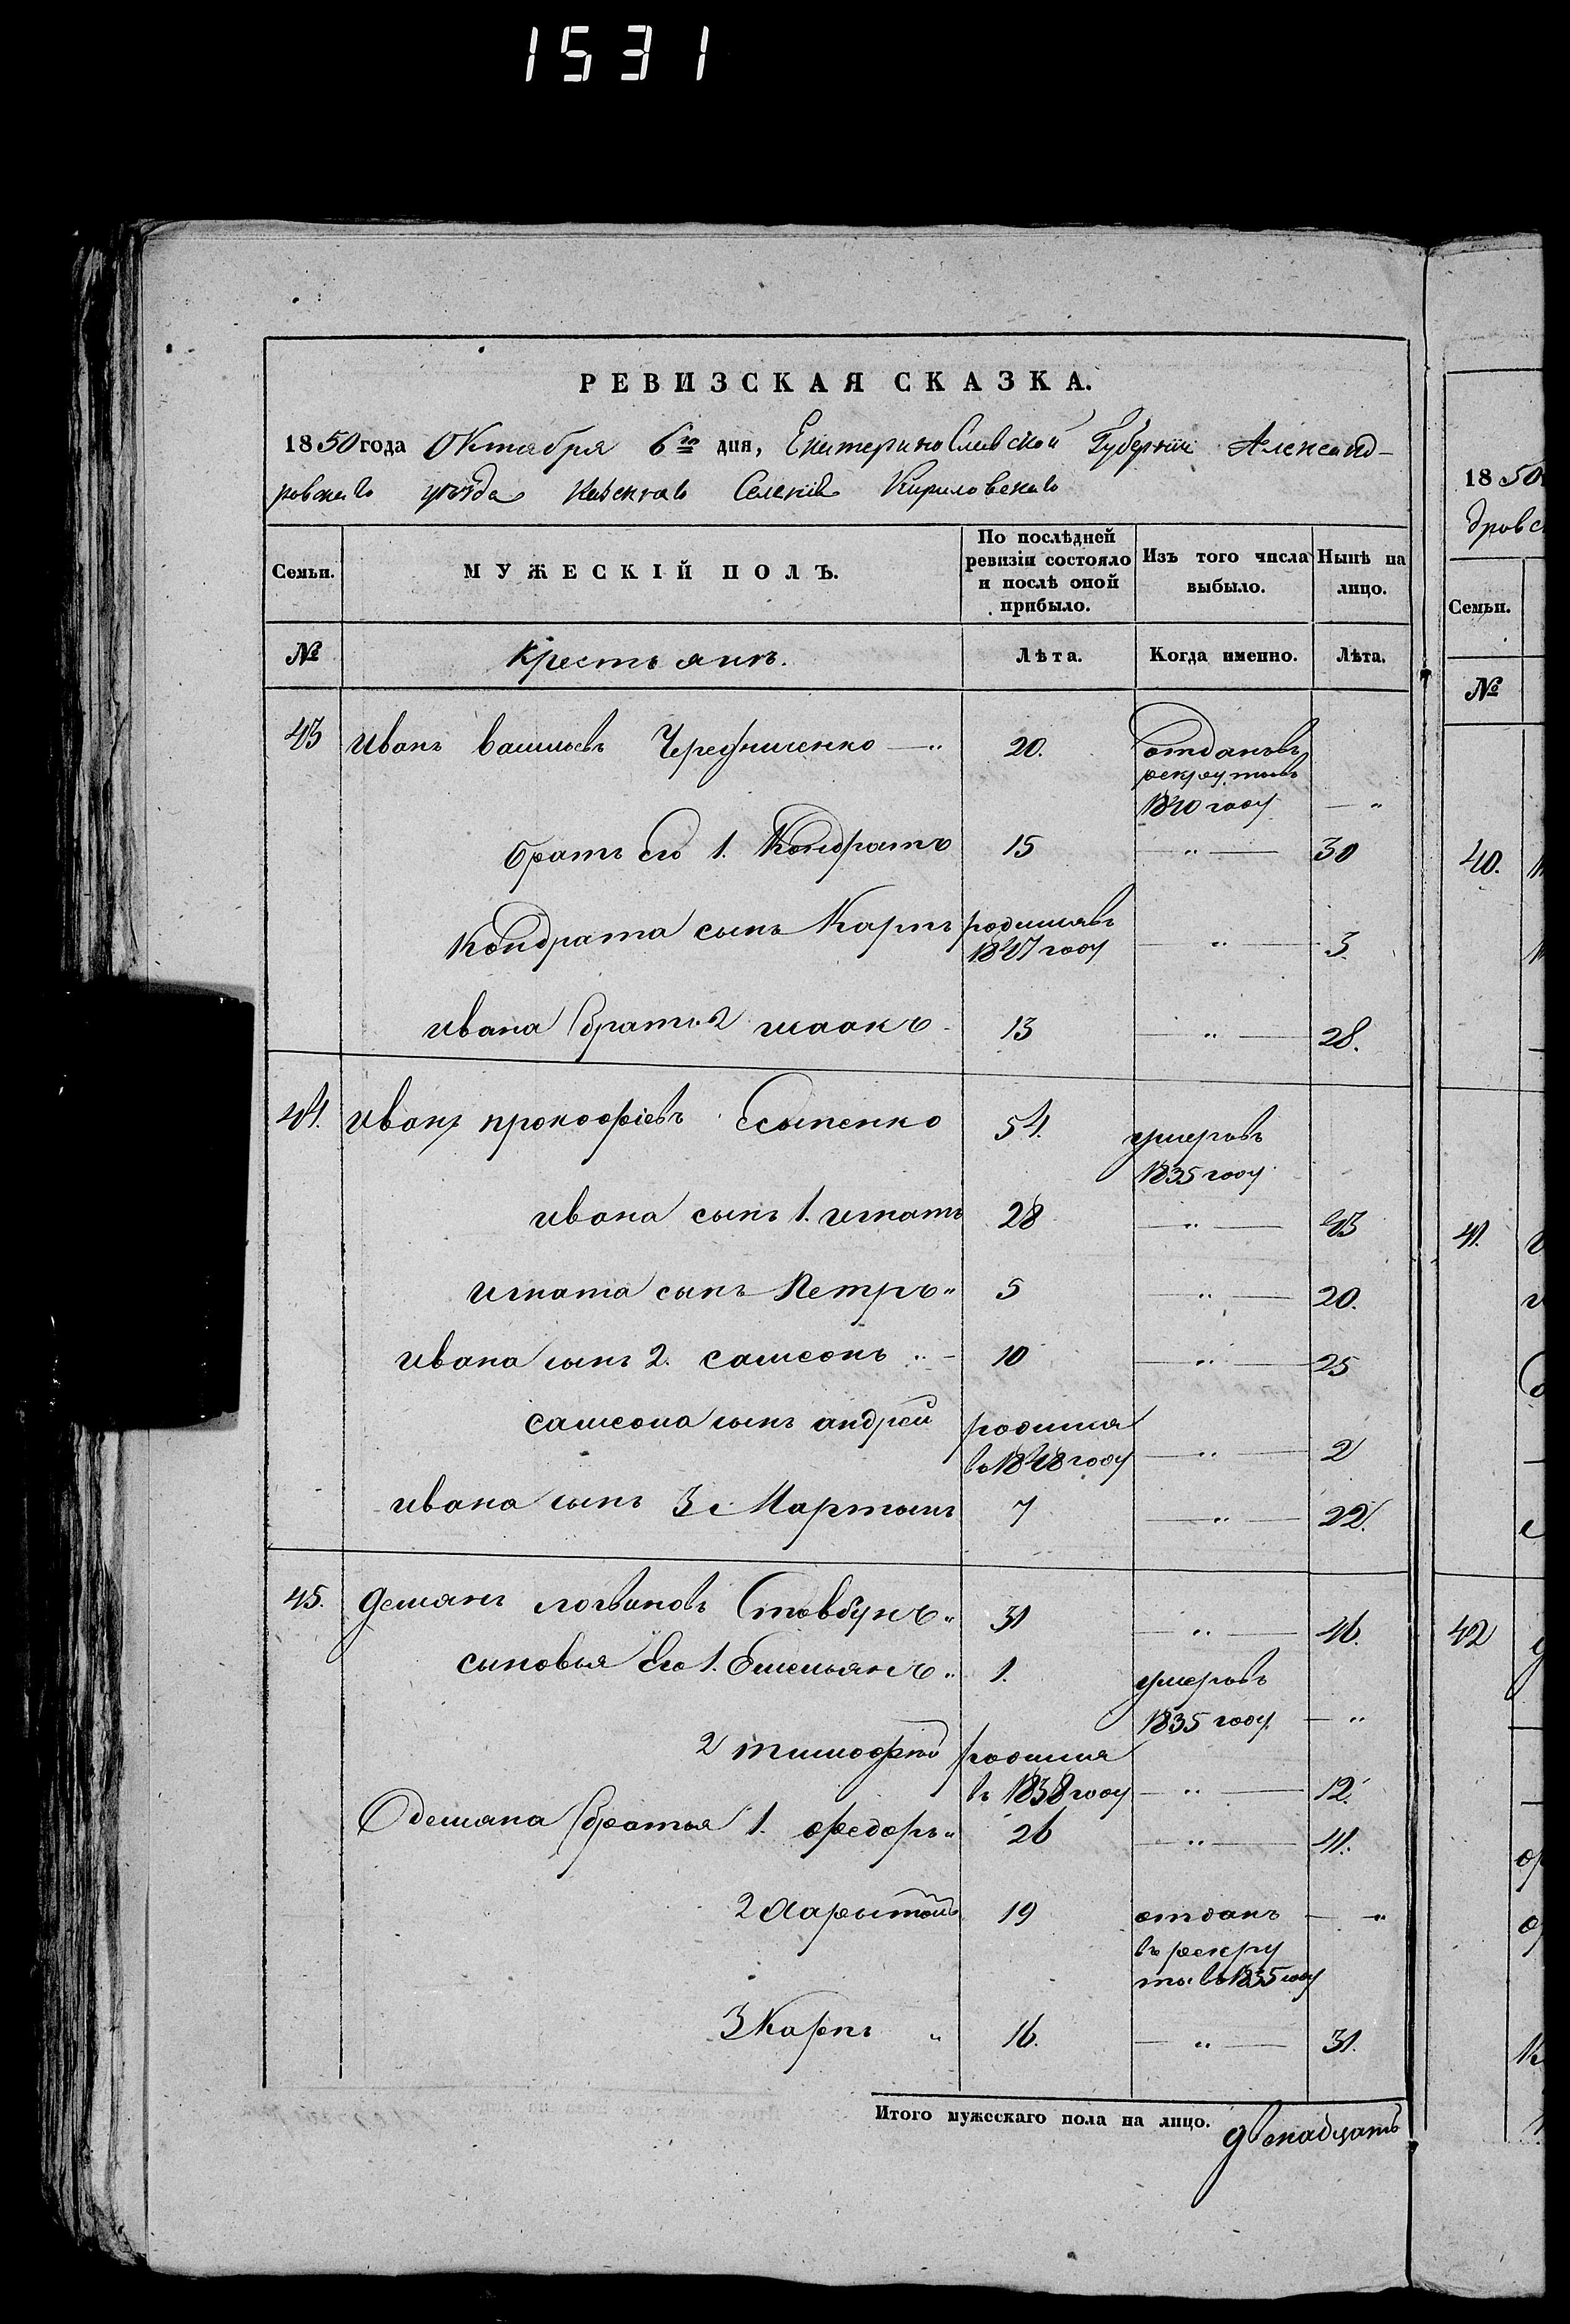 1531
РЕВИЗСКАЯ СКАЗКА.
1850 года Октября 6го дня, Екатеринославской Губерніи Александ-
ровскаго уѣзда Казеннаго Селенія Кириловскаго
Семьи.
МУЖЕСКІЙ ПОЛЪ.
По послѣдней ревизіи состояло и послѣ оной прибыло.
Изъ того числа выбыло.
Нынѣ на лицо.
№ Крестьянъ. Лѣта. Когда именно. Лѣта.
43 Иванъ Васильевъ Чередниченко — " 20. отданъ въ
рекруты въ
1840 году — "
братъ его 1. Кондратъ 15 — " — 30
Кондрата сынъ Карпъ родился въ
1847 году — " — 3
Ивана братъ 2 Исаакъ 13 — " — 28.
44. Иванъ Прокофіевъ Есыпенко 54. умеръ въ
1835 году
Ивана сынъ 1. Игнатъ 28 — " — 43
Игната сынъ Петръ " 5 — " — 20.
Ивана сынъ 2. Самсонъ " - 10 — " — 25
Самсона сынъ Андрей родился
въ 1848 году — " — 2
Ивана сынъ 3 Мартынъ 7 — " — 22.
45. Демянъ Логвиновъ Стовбунъ " 31 — " — 46.
сыновья его 1. Емельянъ " 1. умеръ въ
1835 году — "
2 Тимофей родился
въ 1838 году — " — 12.
Демяна братья 1. Федоръ " 26 — " — 41.
2 Харытонъ 19 отданъ — "
въ рекру
ты въ 1835 году
3 Карпъ " 16. — " — 31.
Итого мужескаго пола на лицо. двенадцать
1850
дровс
Семьи.
№
40.
41.
42